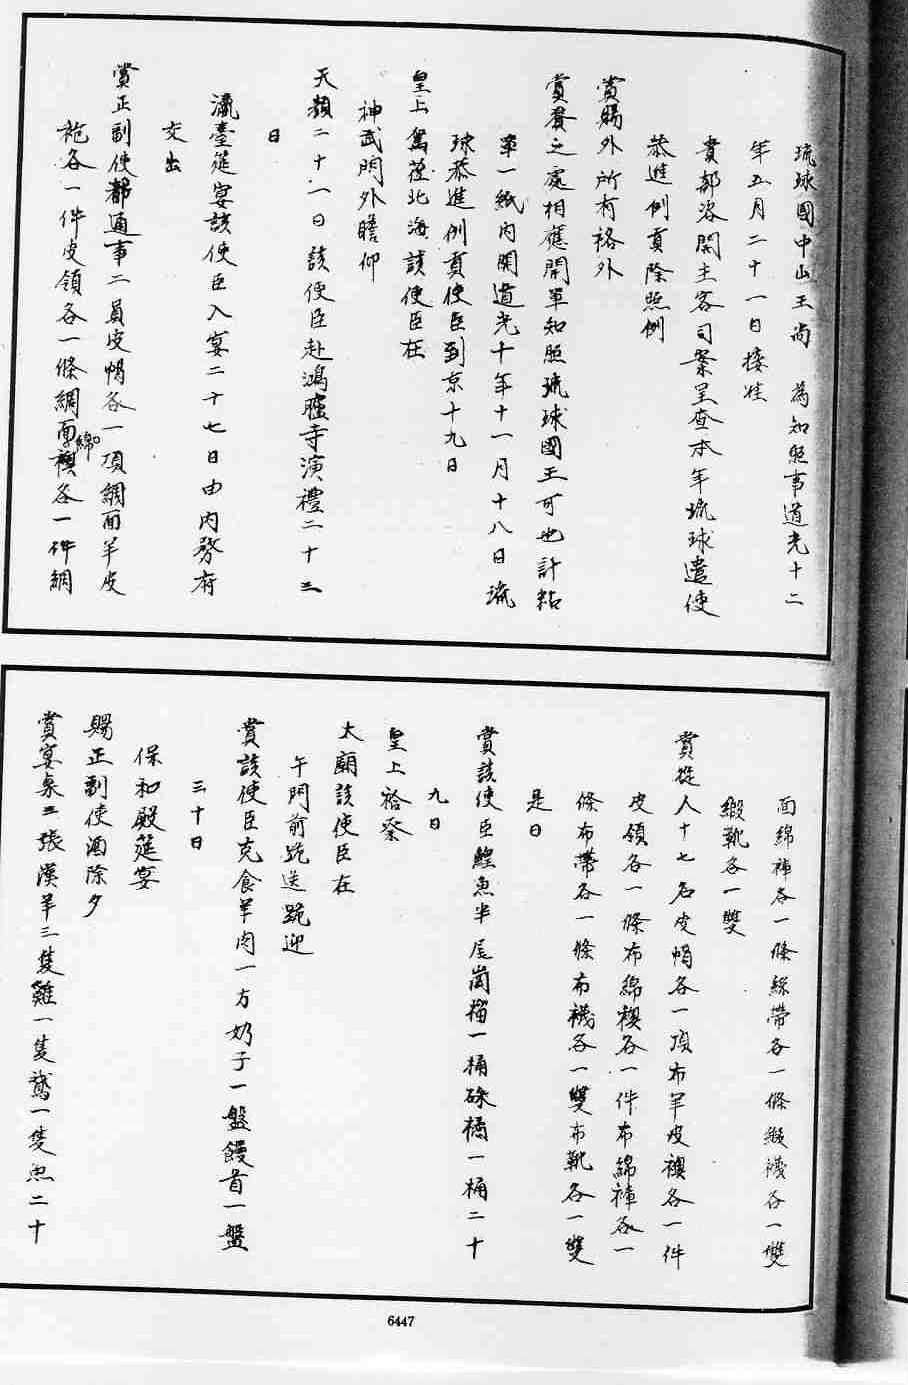 琉球國中山王尚　為知照事道光十二
年五月二十一日接准
貴部咨開主客司案呈查本年琉球遣使
恭進例貢除照例
賞賜外所有格外
賞賚之處相應開單知照琉球國王可也計粘
單一紙內開道光十年十一月十八日琉
球恭進例貢使臣到京十九日
皇上駕莅北海該使臣在
神武門外瞻仰
天顏二十一日該使臣赴鴻臚寺演禮二十三
日
瀛臺筵宴該使臣入宴二十七日由內務府
交出
賞正副使都通事二員皮帽各一項綢面羊皮
袍各一件皮領各一條綢面綿襖各一件綢
面綿褲各一條絲帶各一條緞襪各一雙
緞靴各一雙
賞從人十七名皮帽各一項布羊皮襖各一件
皮領各一條布綿襖各一件布綿褲各一
條布帶各一條布襪各一雙布靴各一雙
是日
賞該使臣鰉魚半尾崗榴一桶硃橘一桶二十
九日
皇上祫祭
太廟該使臣在
午門前跪送跪迎
賞該使臣克食羊肉一方奶子一盤饅首一盤
三十日
保和殿筵宴
賜正副使酒除夕
賞宴桌三張漢羊三隻雞一隻鵝一隻魚二十
6447